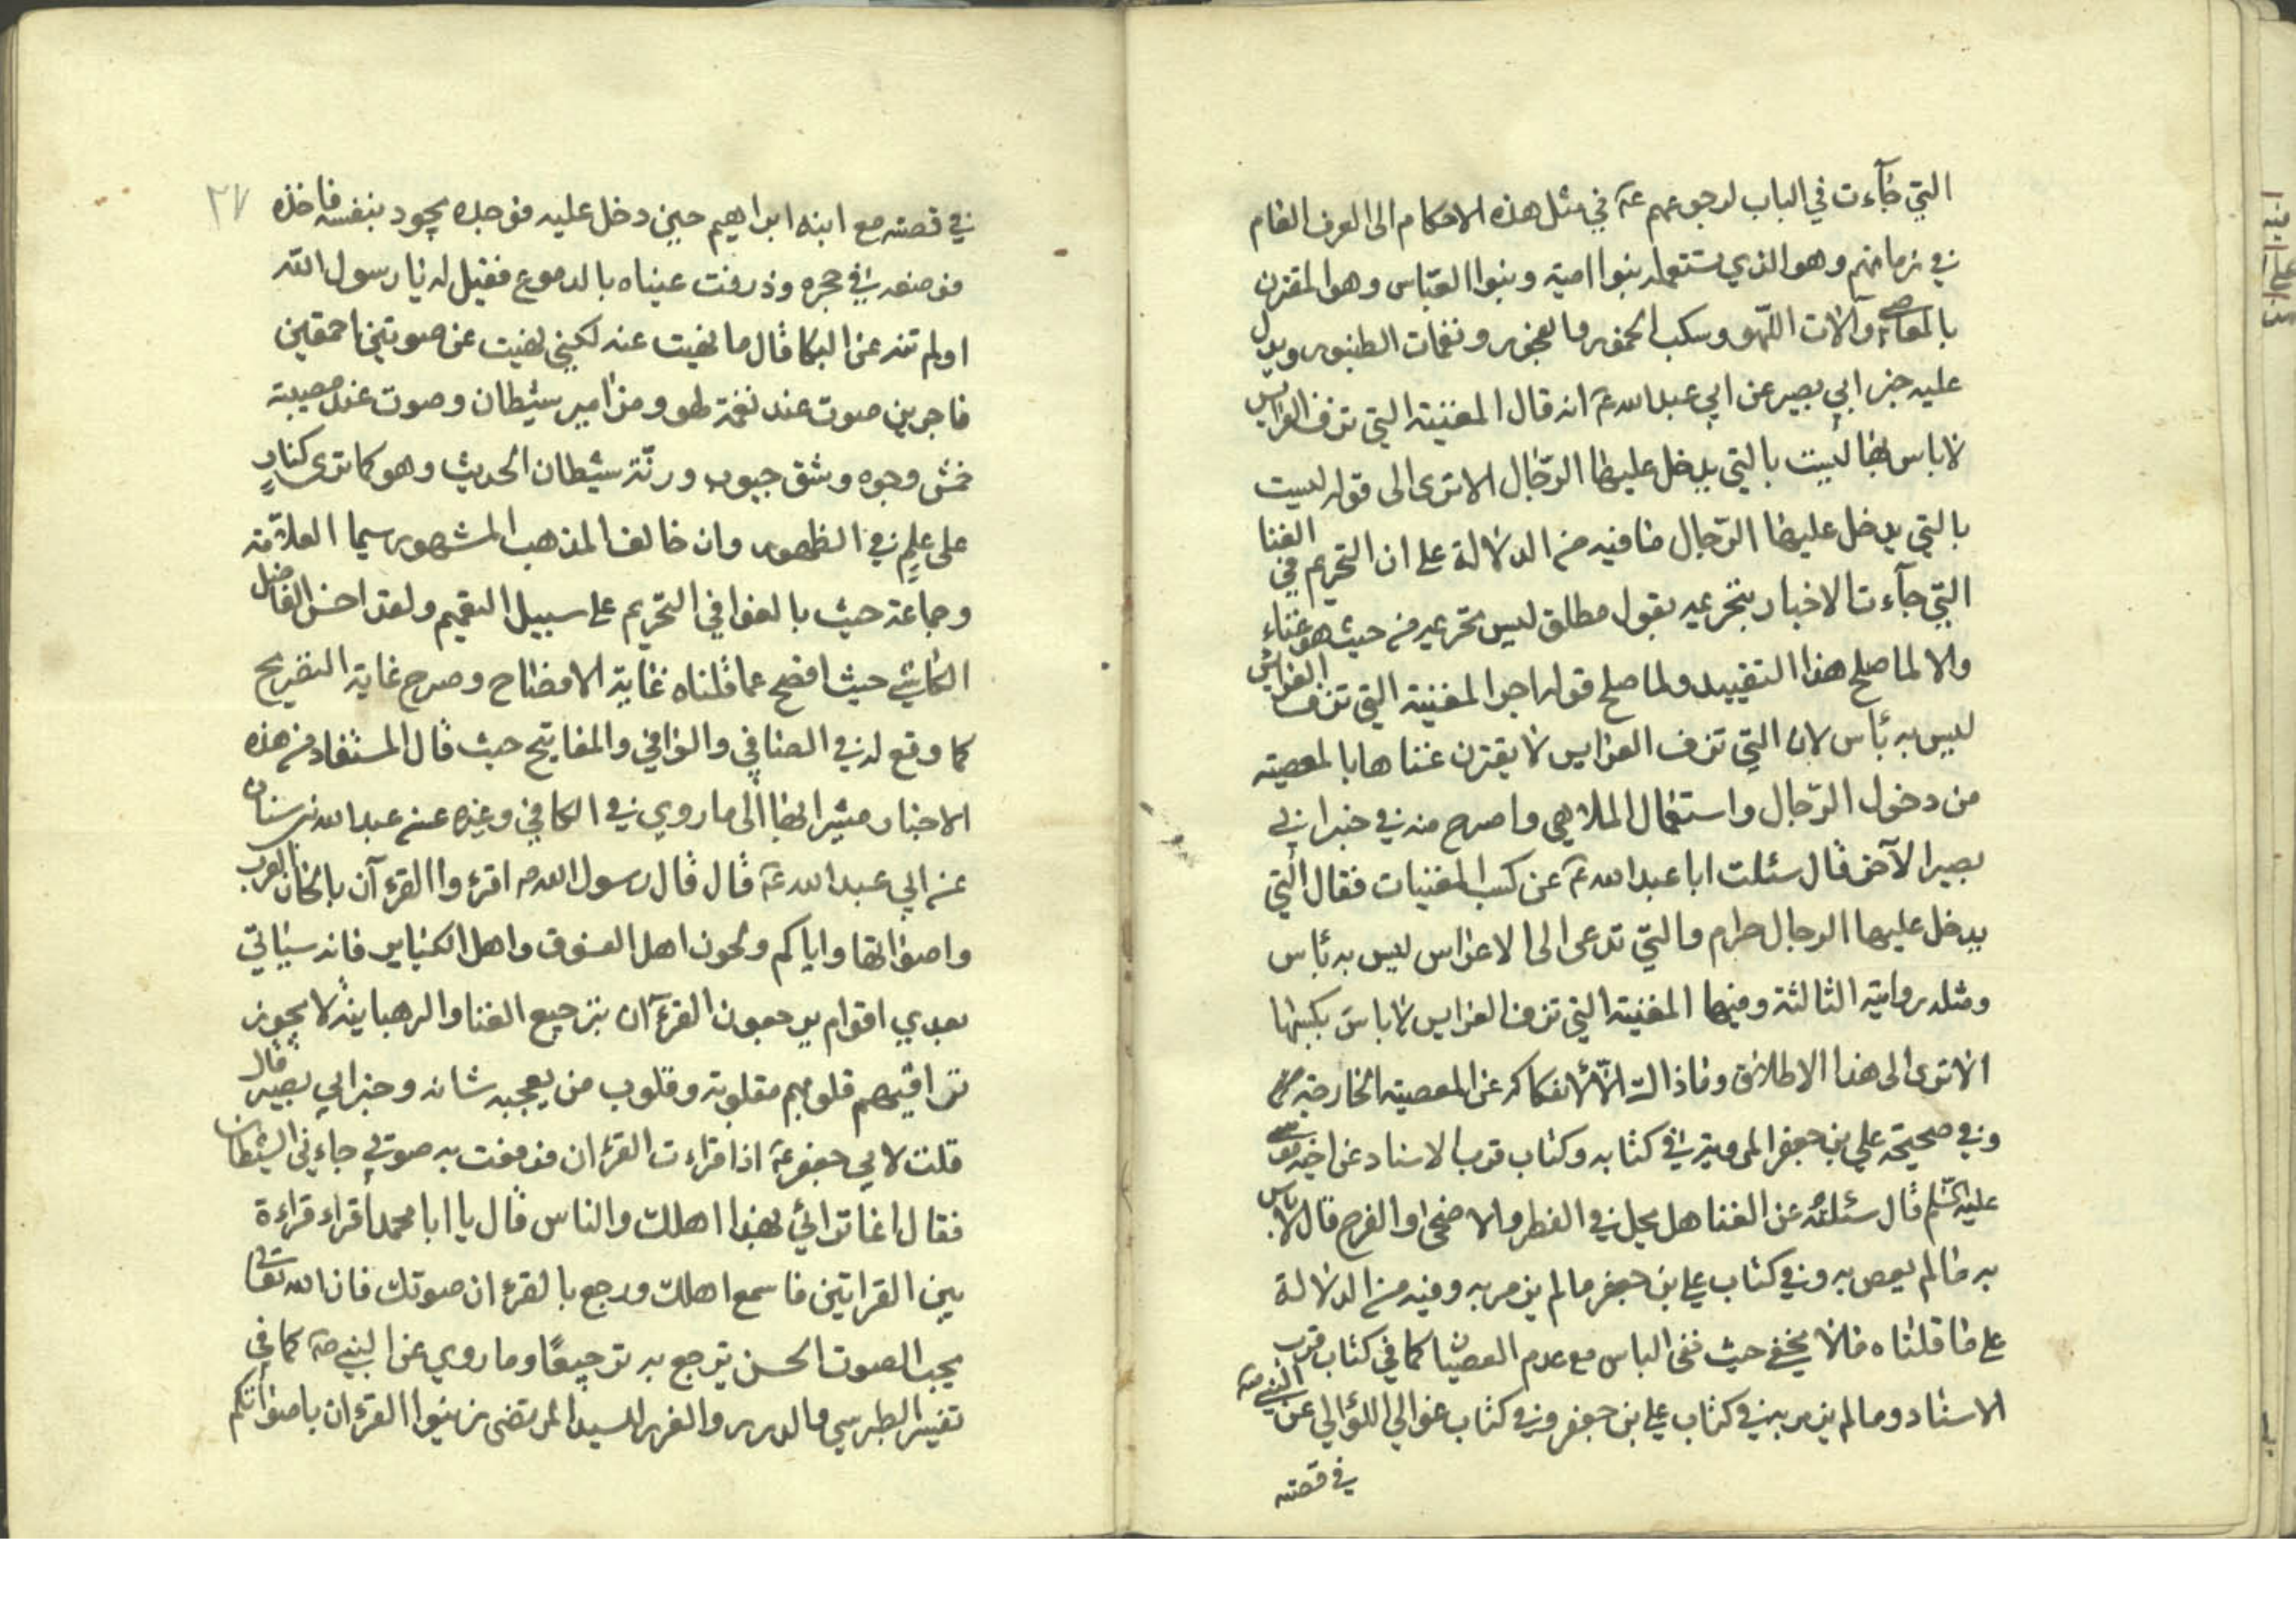 التي جآءت في الباب لرجوعهم عة في مثل هذه الاحكام الى العرف العام
في زمانهم وهو الذي يستعمله بنوا امية وبنوا العباس وهو المقترن
بالمعاصي وآلات اللهو وسكب الخمور والفجور ونغمات الطنبور ويدل
عليه خبر ابي بصير عن ابي عبدالله عة انه قال المغنية التي تزف العرايس
لا باس بها ليست بالتي يدخل عليها الرّجال الا ترى الى قوله ليست
بالتي يدخل عليها الرّجال ما فيه من الدلالة على ان التحريم في الغنا
التي جآءت الاخبار بتحريمه بقول مطلق ليس تحريمه من حيث هو غناء
والا لما صلح هذا التقييد ولما صلح قوله اجر المغنية التي تزف العرايس
ليس به بأس لان التي تزف العرايس لا يقترن غناها بالمعصية
من دخول الرّجال واستعمال الملاهي واصرح منه في خبر ابي
بصير الآخر قال سئلت ابا عبدالله عة عن كسب المغنيات فقال التي
يدخل عليها الرجال حرام والتي تدعى الى الاعراس ليس به بأس
ومثله روايته الثالثة وفيها المغنية التي تزف العرايس لا باس بكسبها
الا ترى الى هذا الاطلاق وما ذالك الّا لانفكاكه عن المعصية الخارجة
وفي صحيحة علي بن جعفر المروية في كتابه وكتاب قرب الاسناد عن اخيه موسى
عليه السّلم قال سئلته عن الغنا هل يحل في الفطر والاضحى او الفرح قال لا باس
به ما لم يعص به وفي كتاب علي بن جعفر ما لم يزمر به وفيه من الدلالة
على ما قلناه ما لا يخفى حيث نفى الباس مع عدم العصيان كما في كتاب قرب
الاسناد وما لم يزمر به في كتاب علي بن جعفر وفي كتاب عوالي اللؤالي عن النبي صة
في قصته
٢٧
في قصته مع ابنه ابراهيم حين دخل عليه فوجده يجود بنفسه فاخذه
فوضعه في حجره وذرفت عيناه بالدموع فقيل له يا رسول الله
اولم تنه عن البكا قال ما نهيت عنه لكني نهيت عن صوتين احمقين
فاجرين صوت عند نغمة لهو ومزامير شيطان وصوت عند مصيبة
خمش وجوه وشق جيوب ورنّة شيطان الحديث وهو كما ترى كنارٍ
على علمٍ في الظهور وان خالف المذهب المشهور سيما العلامة
وجماعة حيث بالغوا في التحريم على سبيل التعميم ولقد احسن الفاضل
الكاشي حيث افصح عما قلناه غاية الافصاح وصرح غاية التصريح
كما وقع له في الصافي والوافي والمفاتيح حيث قال المستفاد من هذه
الاخبار مشيرا بها الى ما روي في الكافي وغيره عن عبدالله بن سنان
عن ابي عبدالله عة قال قال رسول الله صه اقرءوا القرءآن بالحان العرب
واصواتها واياكم ولحون اهل الفسوق واهل الكباير فانه سياتي
بعدي اقوام يرجعون القرءآن بترجيع الغنا والرهبانية لا يجوز
تراقيهم قلوبهم مقلوبة وقلوب من يعجبه شانه وخبر ابي بصير قال
قلت لابي جعفر عة اذا قراءت القرءان فرفعت به صوتي جاءني الشيطان
فقال انما ترائي بهذا اهلك والناس قال يا ابا محمد اقراء قراءة
بين القراتين فاسمع اهلك ورجع بالقرءان صوتك فان الله تعالى
يحب الصوت الحسن يترجع به ترجيعًا وما روي عن النبي صة كما في
تفسير الطبرسي والدرر والغرر للسيد المرتضى زينوا القرءان باصواتكم